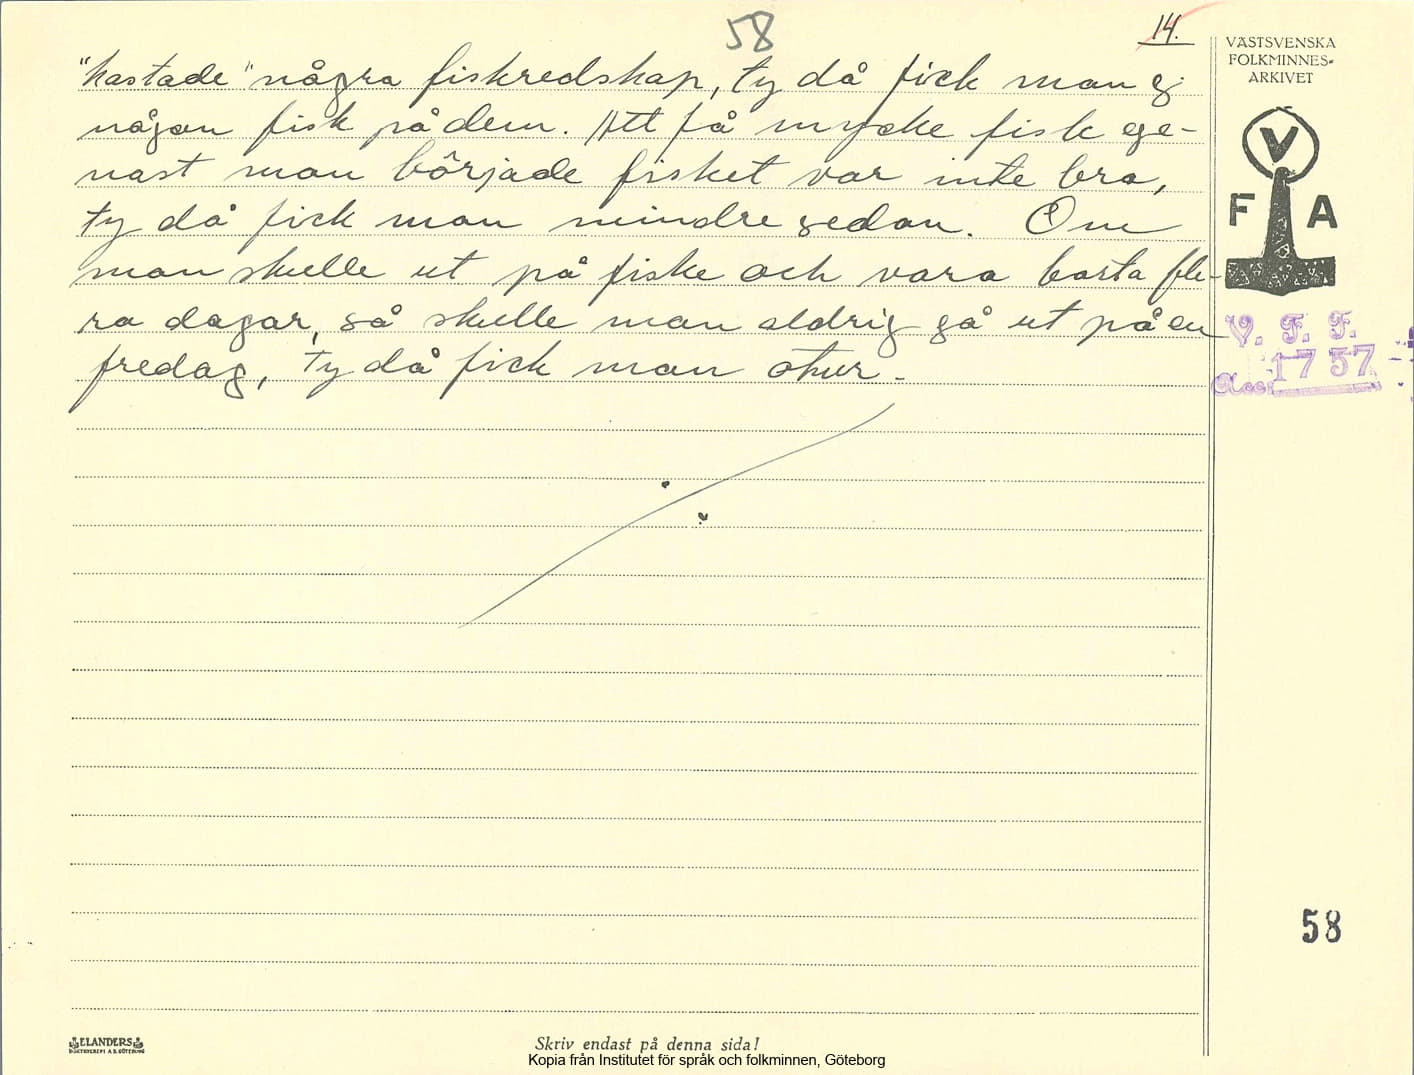 58
14.
"kastade" några fiskredskap, ty då fick man ej
någon fisk på dem. Att få mycke fisk ege-
nast man började fisket var inte bra,
ty då fick man mindre sedan. Om
man skulle ut på fiske och vara borta fle-
ra dagar, så skulle man aldrig gå ut på en
fredag, ty då fick man otur.
VÄSTSVENSKA
FOLKMINNES-
ARKIVET
V
F A
V. F. F.
Acc. 1757
58
ELANDERS
BOKTRYCKERI A.B. GÖTEBORG
Skriv endast på denna sida!
Kopia från Institutet för språk och folkminnen, Göteborg